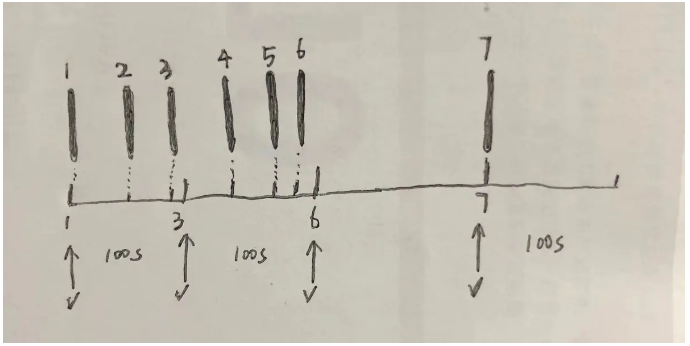 1 2 3 4 5 6 7
1 3 6 7
100s 100s 100s